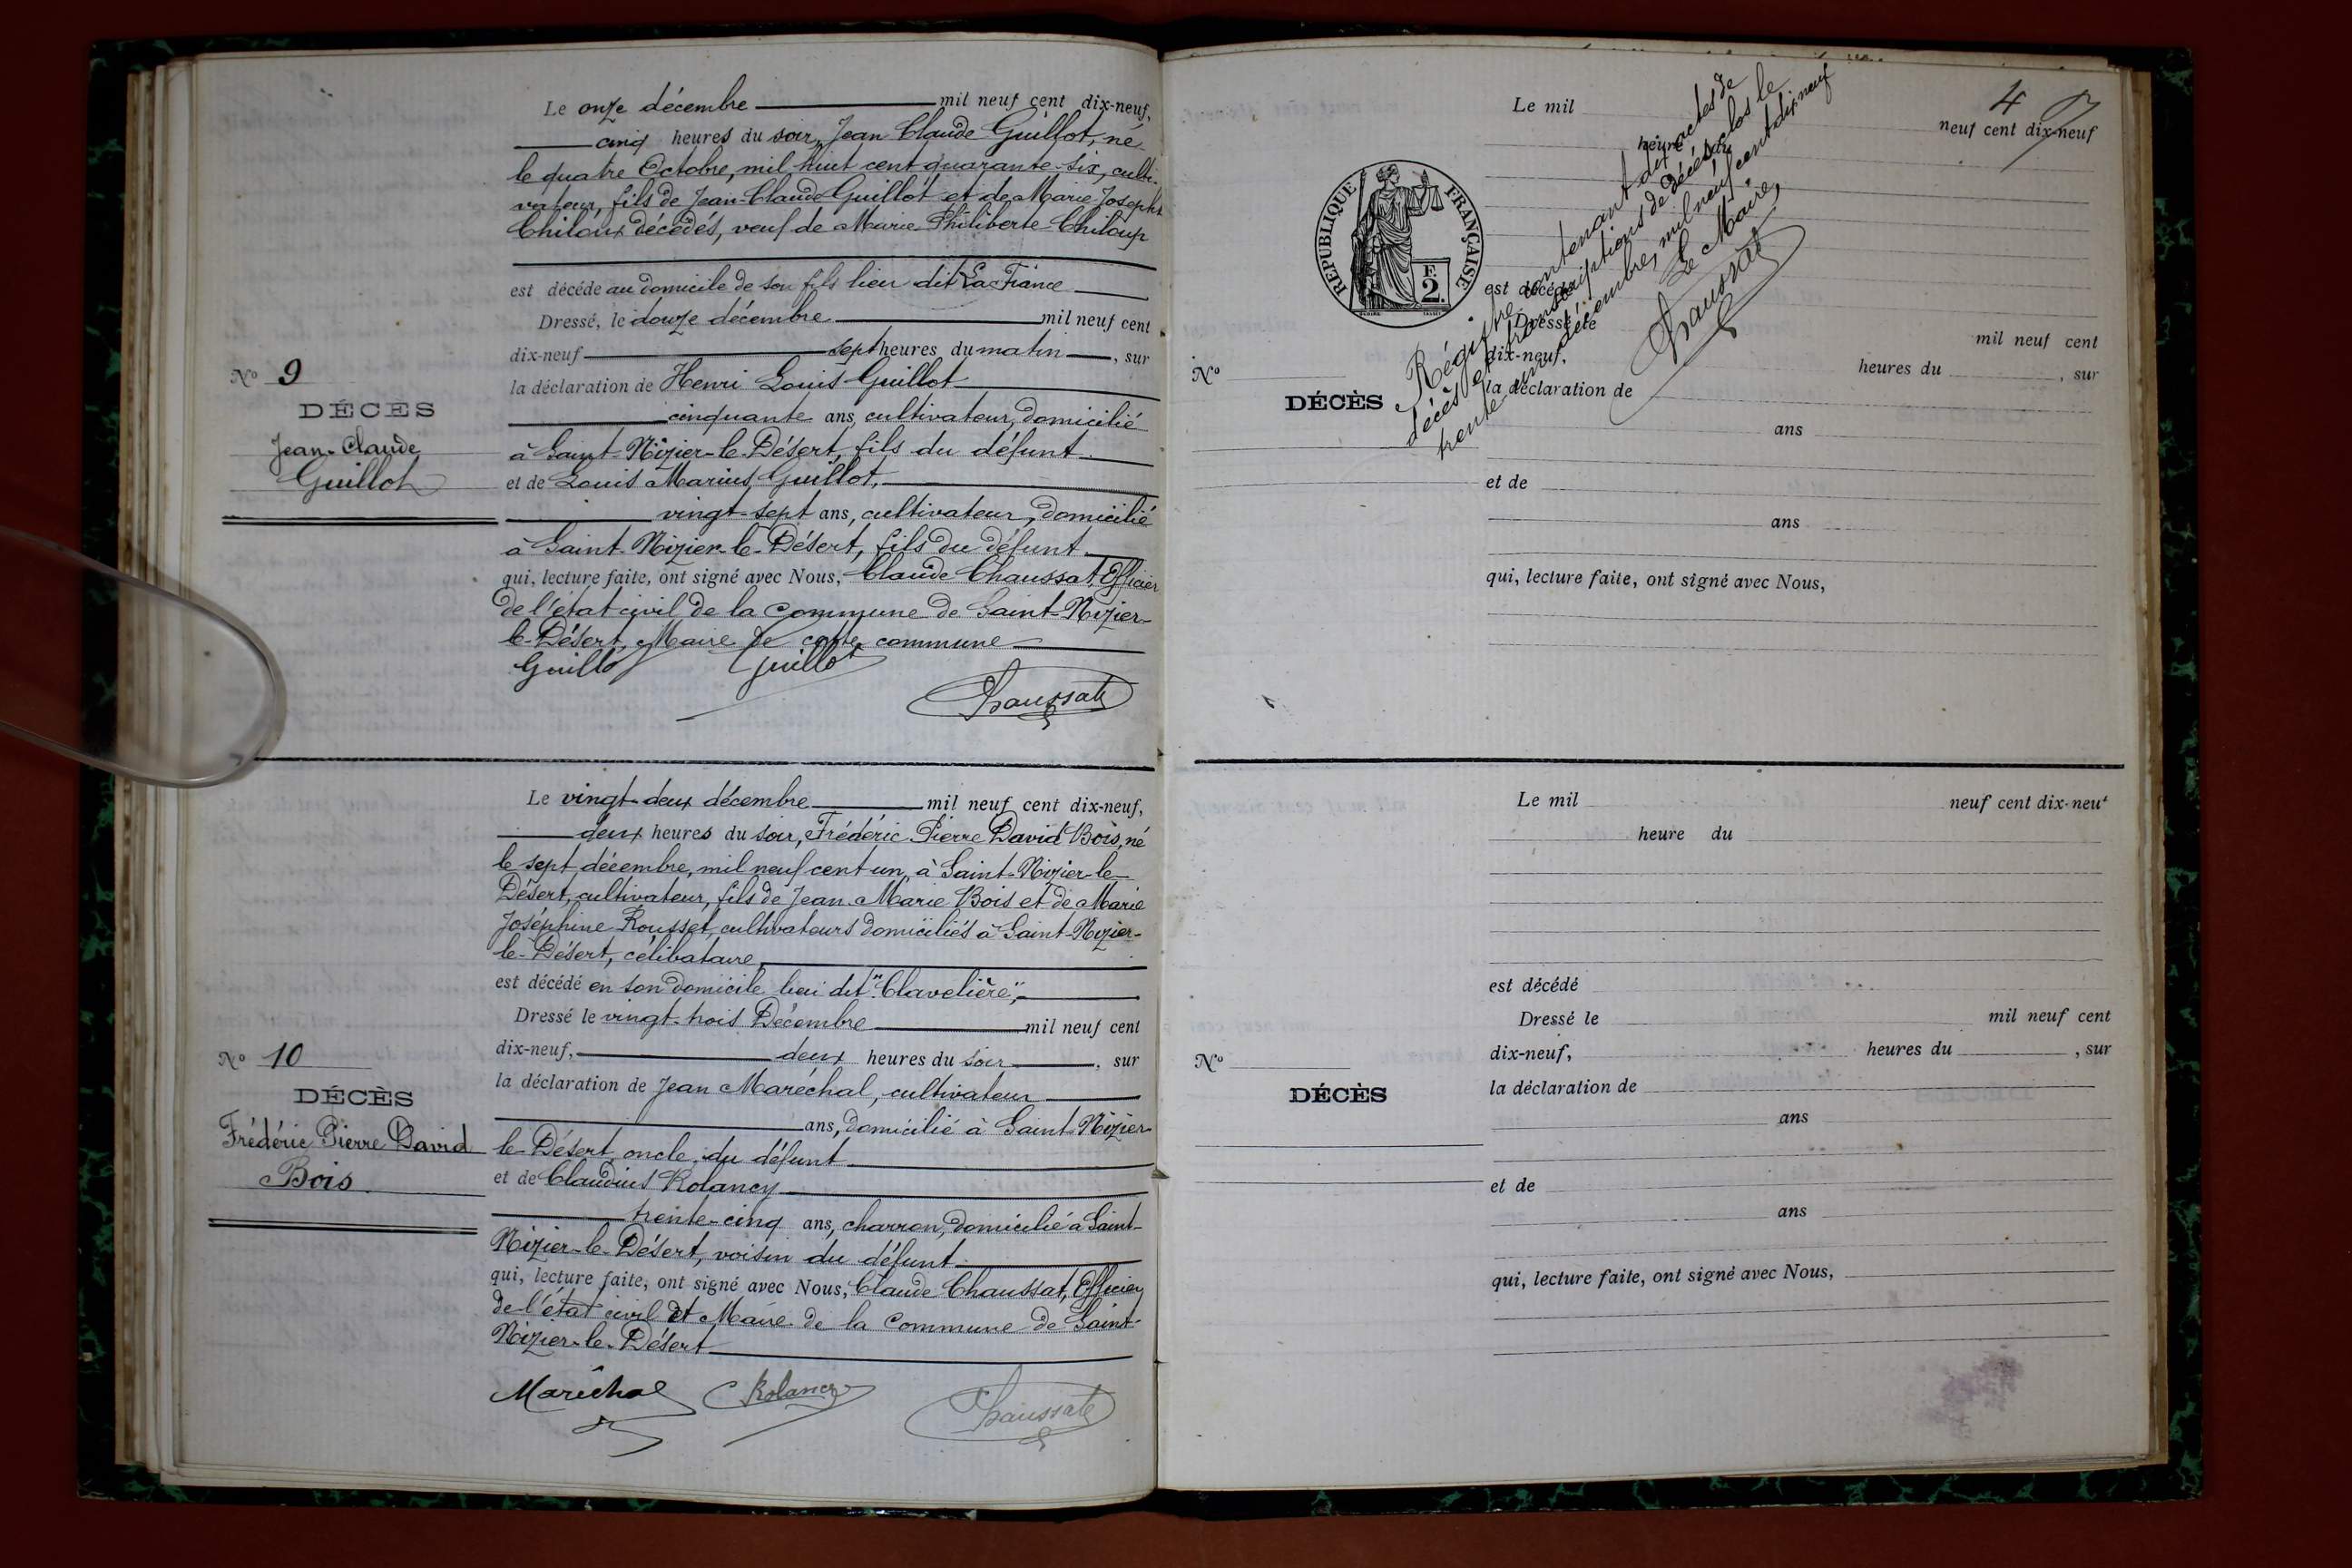 Le onze décembre mil neuf cent dix-neuf,
cinq heures du soir, Jean Claude Guillot, né
le quatre Octobre, mil huit cent quarante-six, culti-
vateur, fils de Jean-Claude Guillot et de Marie Josephte
Chiloux décédés, veuf de Marie Philiberte Chiloup
est décédé au domicile de son fils lieu dit La France
Dressé, le douze décembre mil neuf cent
dix-neuf sept heures du matin, sur
la déclaration de Henri Louis Guillot
cinquante ans, cultivateur, domicilié
à Saint-Nizier-le-Désert, fils du défunt
et de Louis Marius Guillot,
vingt-sept ans, cultivateur, domicilié
à Saint-Nizier-le-Désert, fils du défunt
qui, lecture faite, ont signé avec Nous, Claude Chaussat, Officier
de l'état civil de la Commune de Saint-Nizier-
le-Désert, Maire de cette commune
Guillot Guillot
Chaussat
No 9
DÉCÈS
Jean-Claude
Guillot
Le vingt-deux décembre mil neuf cent dix-neuf,
deux heures du soir, Frédéric Pierre David Bois, né
le sept décembre, mil neuf cent un, à Saint-Nizier-le-
Désert, cultivateur, fils de Jean Marie Bois et de Marie
Joséphine Rousset, cultivateurs domiciliés à Saint-Nizier-
le-Désert, célibataire,
est décédé en son domicile lieu dit "Clavelière",
Dressé le vingt-trois Décembre mil neuf cent
dix-neuf, deux heures du soir, sur
la déclaration de Jean Maréchal, cultivateur
ans, domicilié à Saint-Nizier-
le-Désert, oncle du défunt
et de Claudius Rolancy
trente-cinq ans, charron, domicilié à Saint-
Nizier-le-Désert, voisin du défunt
qui, lecture faite, ont signé avec Nous, Claude Chaussat, Officier
de l'état civil et Maire de la Commune de Saint-
Nizier-le-Désert
Maréchal C Rolancy Chaussat
No 10
DÉCÈS
Frédéric Pierre David
Bois
4
Le mil neuf cent dix-neuf
heure
RÉPUBLIQUE FRANÇAISE
F.
2.
est décédé
Dressé le mil neuf cent
dix-neuf, heures du , sur
la déclaration de
ans
et de
ans
qui, lecture faite, ont signé avec Nous,
No
DÉCÈS
Régistre contenant dix actes de
décès et transcriptions de décès, clos le
trente un décembre, mil neuf cent dix neuf
Le Maire,
Chaussat
Le mil neuf cent dix-neuf
heure du
est décédé
Dressé le mil neuf cent
dix-neuf, heures du , sur
la déclaration de
ans
et de
ans
qui, lecture faite, ont signé avec Nous,
No
DÉCÈS